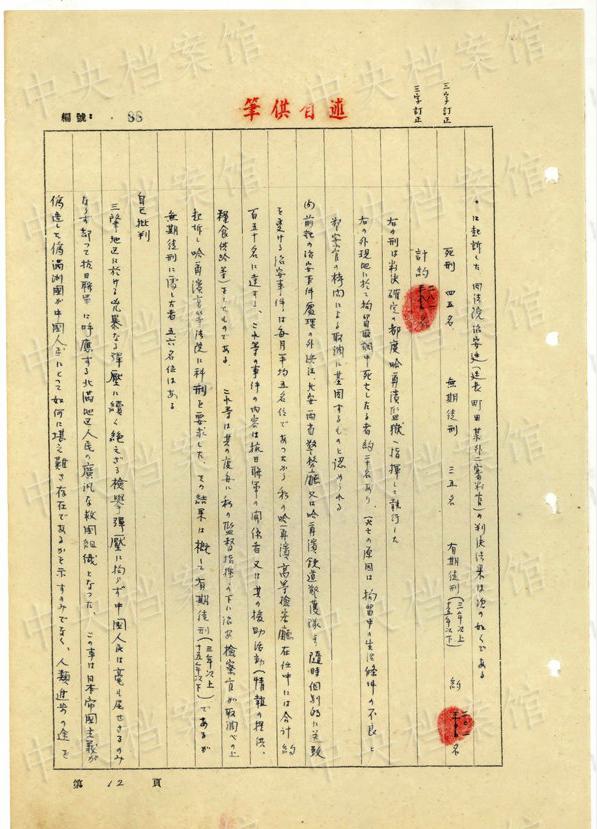 三字訂正
三字訂正
筆供自述
編號: 88
に起訴した 同法院治安庭(庭長 町田某外二審判官)の判決結果は次の如くである
死刑 四五名 無期徒刑 三五名 有期徒刑(三年以上十五年以下) 約 名
計約 名
右の刑は判決確定の都度哈爾濱監獄へ指揮して執行した
右の外現地に於て拘留取調中死亡したる者約 名あり、(死亡の原因は拘留中の生活條件の不良と
警察官の拷問による取調に基因するものと認められる
前記の治安事件處理の外浜江、北安両省警務廳又は哈爾濱鉄道警護隊より隨時個別的に送致
を受ける治安事件は毎月平均五名位であつたから私の哈爾濱高等檢察廳在任中には合計約
百五十名に達する、これ等の事件の内容は抗日聯軍の関係者又は其の援助活動(情報の提供、
糧食供給等)をしたものである これ等は其の度毎に私の監督指揮の下に治安檢察官が取調べの上
起訴し哈爾濱高等法院に科刑を要求した、その結果は概して有期徒刑(三年以上十五年以下)であるが
無期徒刑に處した者五六名位はある
自己批判
三肇地区に於ける兇暴なる彈壓に續く絶えざる檢擧彈壓に拘らず中国人民は毫も屈せざるのみ
ならず却つて抗日聯軍に呼應する北満地区人民の廣汎な救国組織となつた、この事は日本帝国主義が
偽造した偽満洲國が中国人民にとつて如何に堪え難き存在であるかを示すのみでなく、人類進歩の途を
第 12 頁
中央档案馆